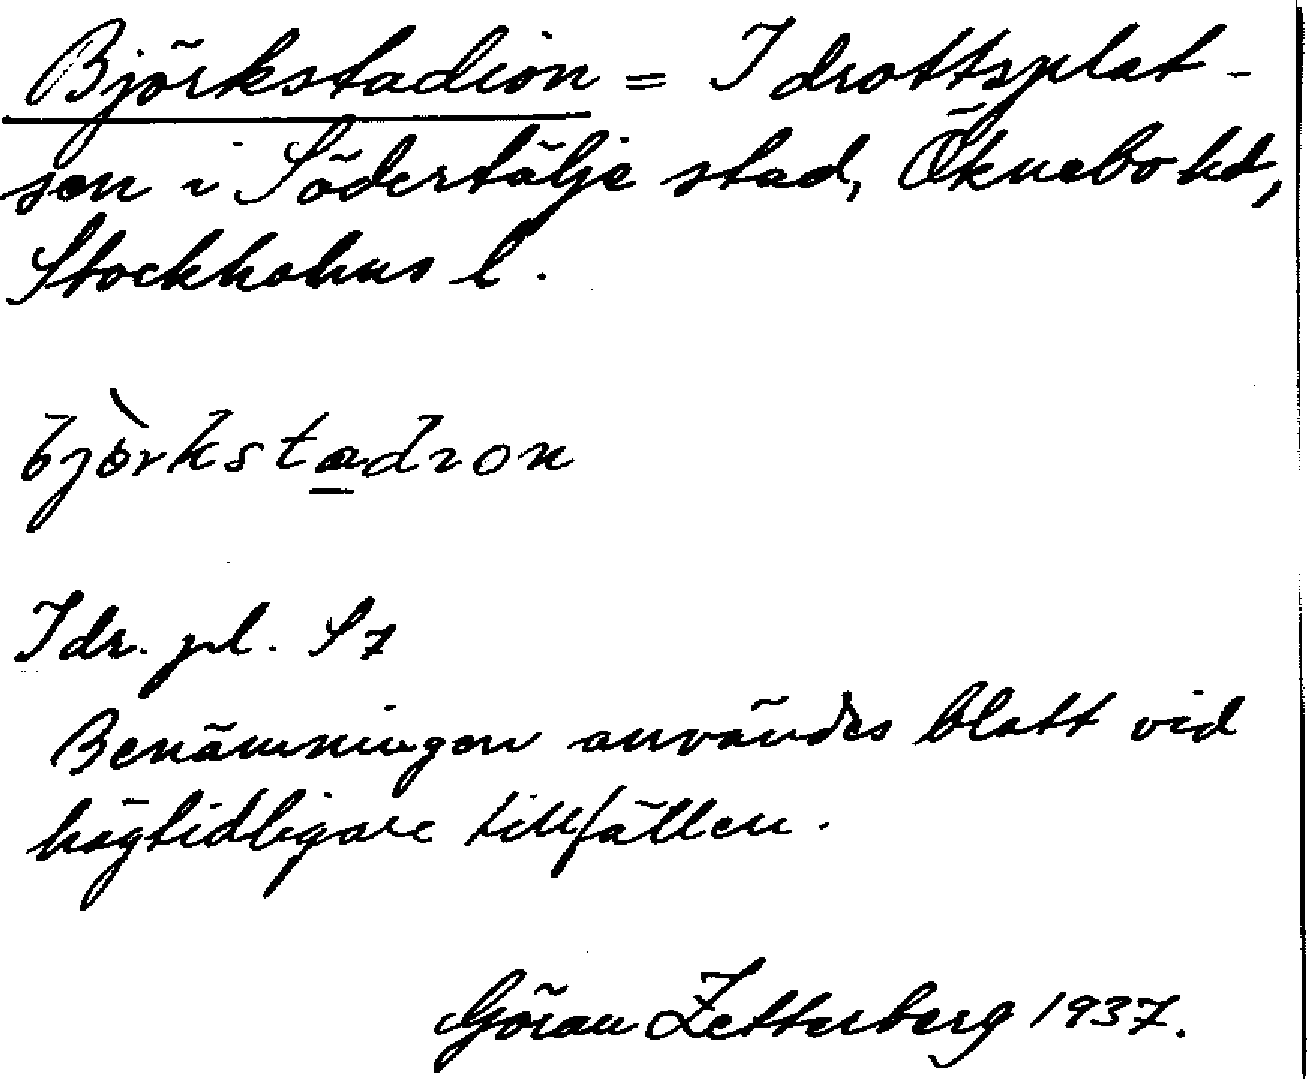 Björkstadion = Idrottsplat-
sen i Södertälje stad, Öknebo hd,
Stockholms l.
björkstadion
Idr. pl. S7
Benämningen användes blott vid
högtidligare tillfällen.
Göran Zetterberg 1937.